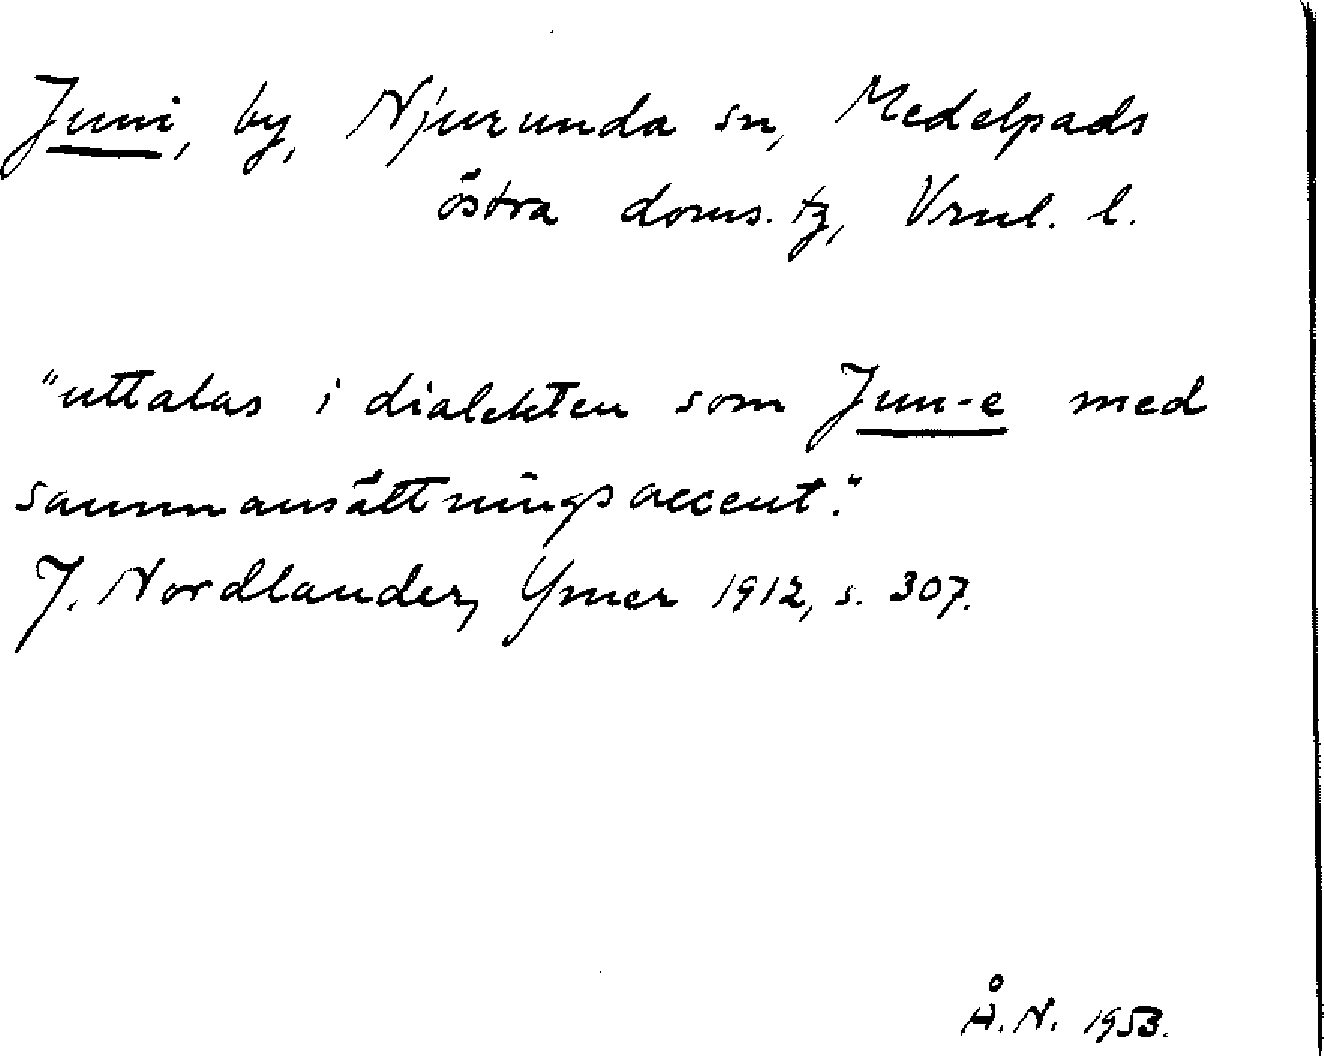 Juni, by, Njurunda sn, Medelpads
östra doms. tg, Vrnl. l.
"uttalas i dialekten som Jun-e med
sammansättningsaccent."
J. Nordlander, Ymer 1912, s. 307.
Å.N. 1953.